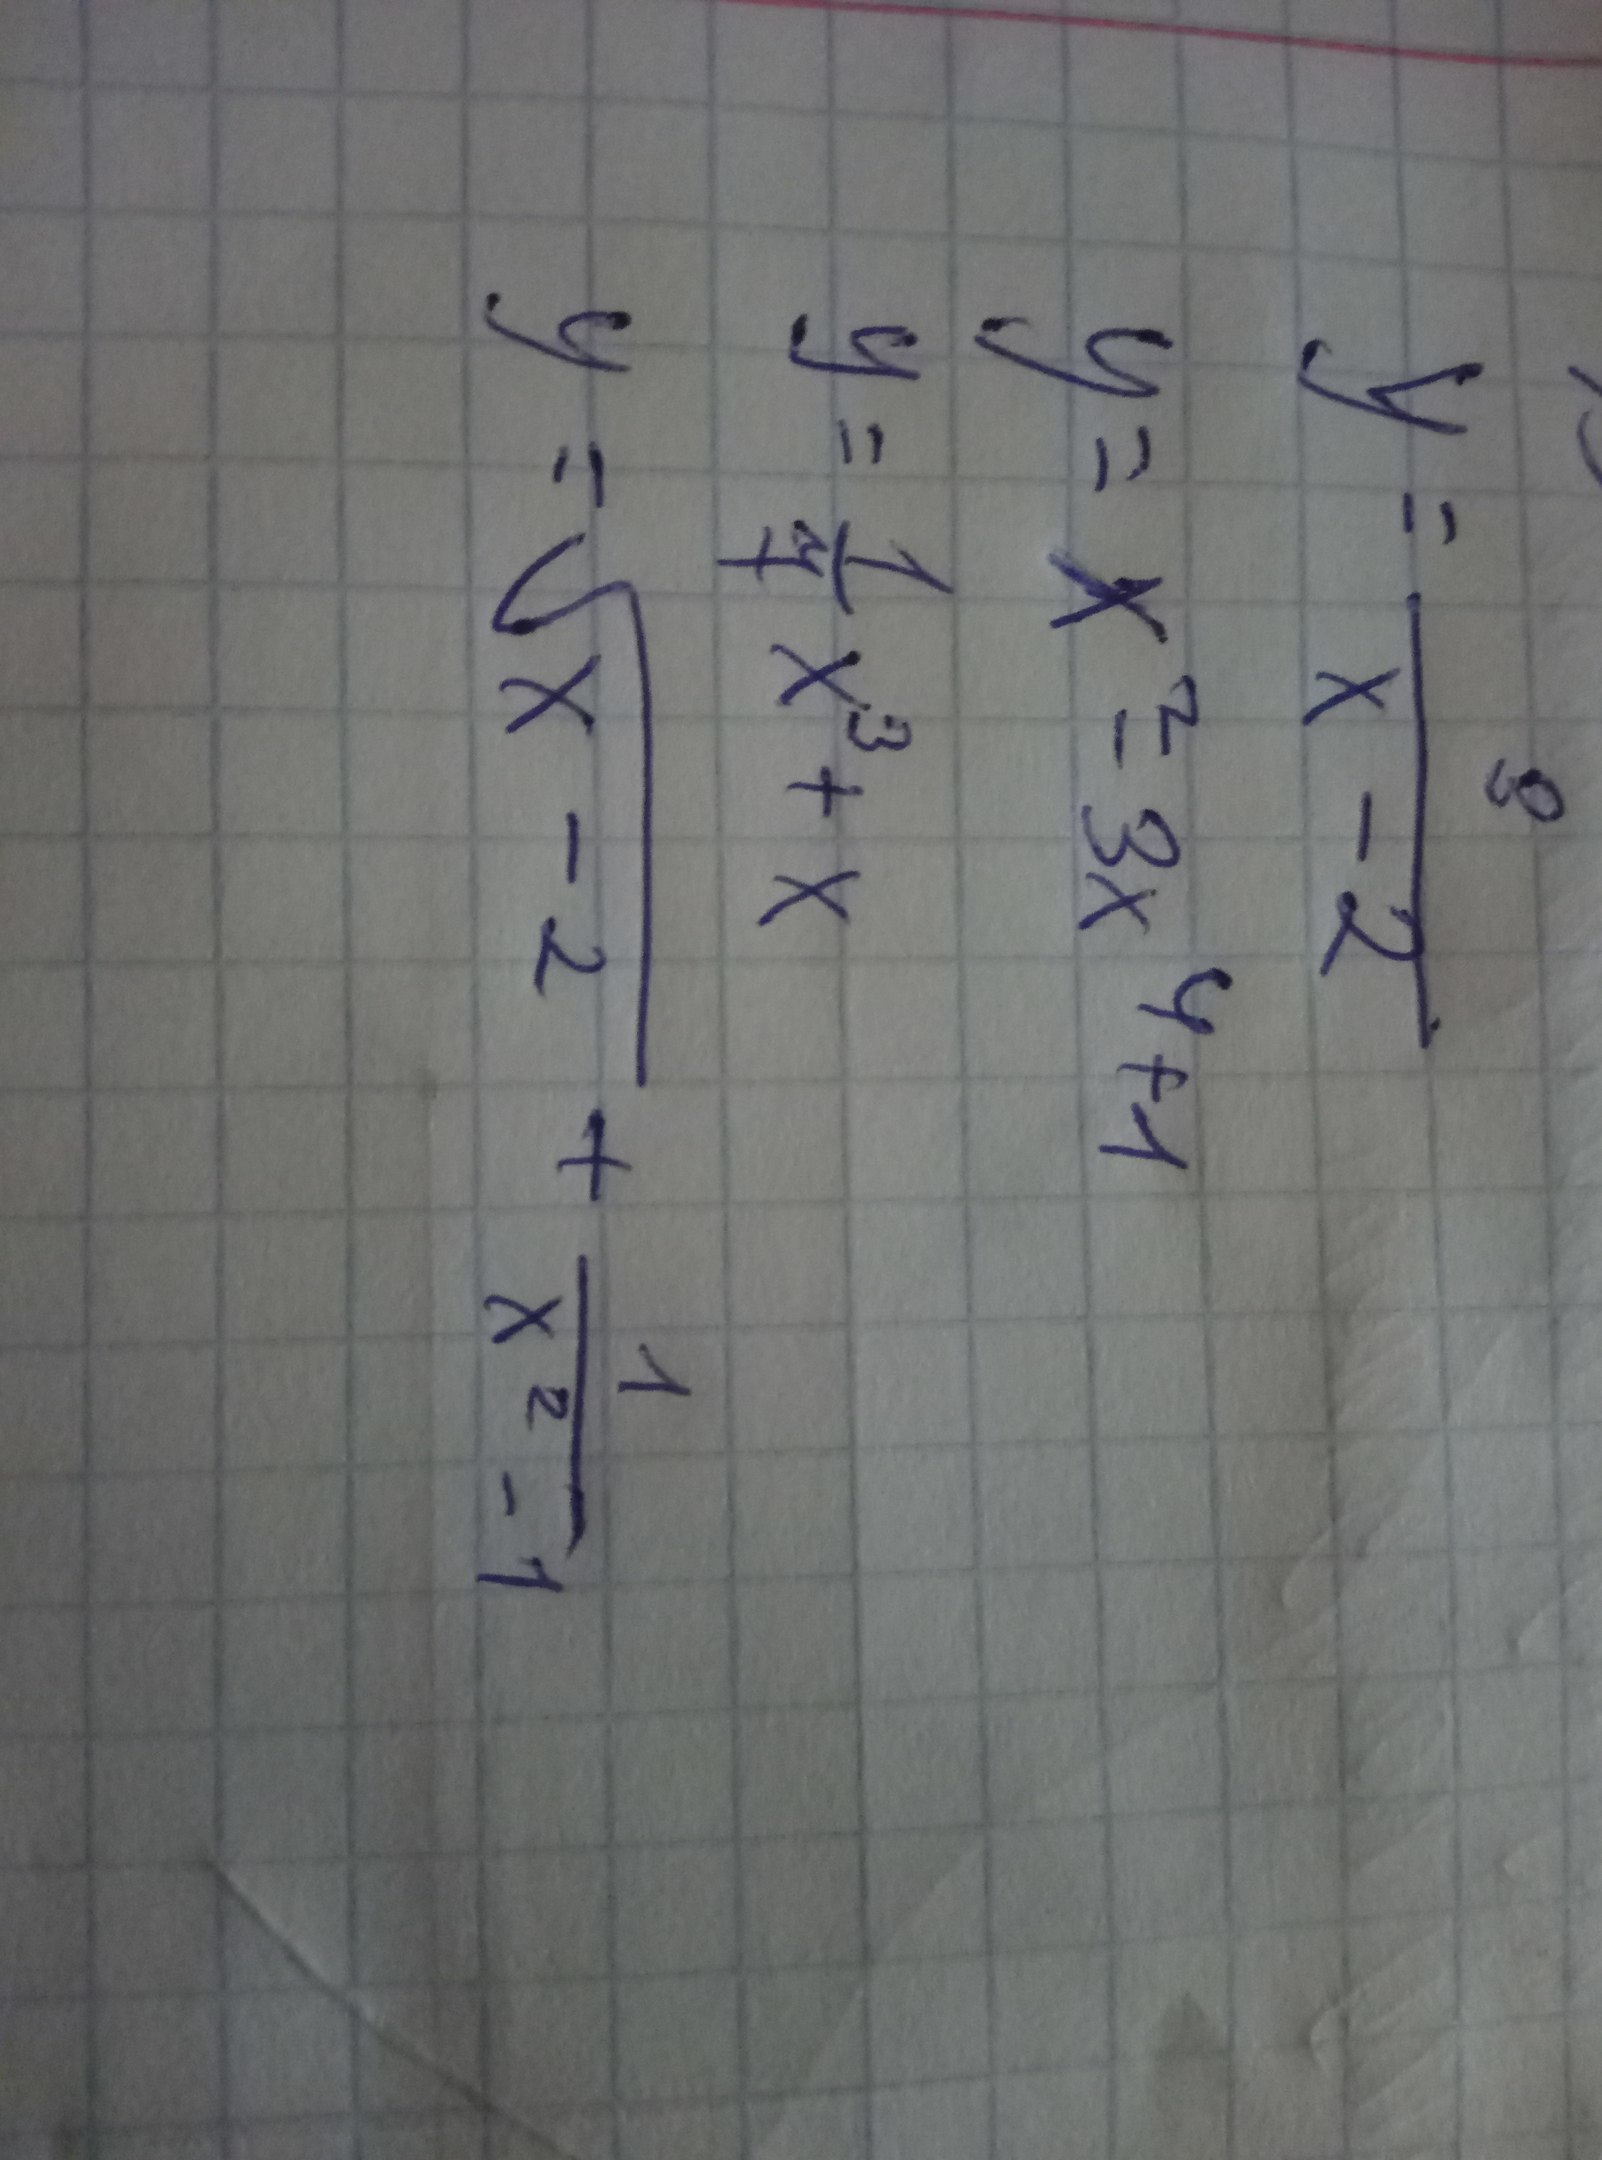 y = 8/(x - 2)
y = x² - 3x⁴ + 1
y = 1/4 x³ + x
y = √(x - 2) + 1/(x² - 1)